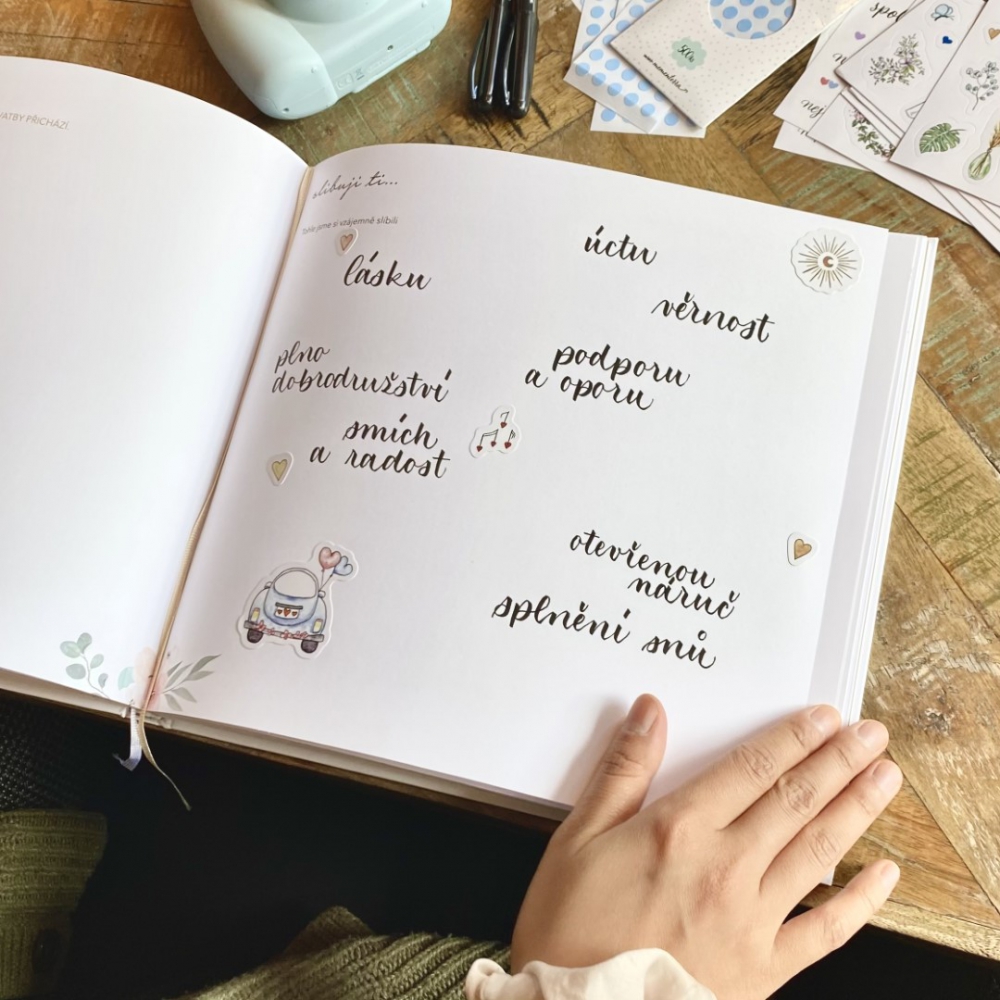 VATBY PŘICHÁZÍ
slibuji ti...
Tohle jsme si vzájemně slíbili
lásku
úctu
věrnost
plno
dobrodružství
podporu
a oporu
smích
a radost
otevřenou
náruč
splnění snů